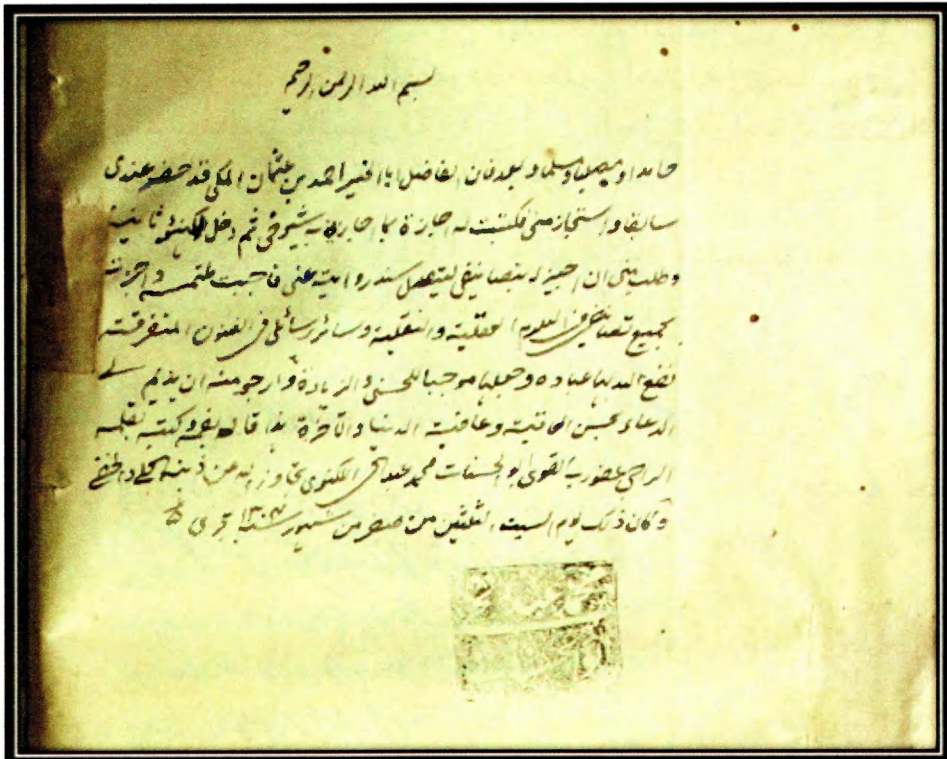 بسم الله الرحمن الرحيم
حامدا ومصليا ومسلما وبعد فان الفاضل ابا الخير احمد بن عثمان المكي قد حضر عندي
سابقا واستجاز مني فكتبت له اجازة بما اجازني به شيوخي ثم دخل لكنؤ ثانية
وطلب مني ان اجيزه بتصانيفي ليتصل سند روايته عني فاجبت ملتمسه واجزته
بجميع تصانيفي في العلوم العقلية والنقلية وسائر رسائلي في الفنون المتفرقة
نفع الله بها عباده وجعلها موجبا للحسنى والزيادة وارجو منه ان يديم لي
الدعاء بحسن الخاتمة وعافية الدنيا والآخرة هذا قاله بفمه وكتبه بقلمه
الراجي عفو ربه القوي ابو الحسنات محمد عبد الحي اللكنوي تجاوز الله عن ذنبه الجلي والخفي
وكان ذلك يوم السبت الثلثين من صفر من شهور سنة هجري